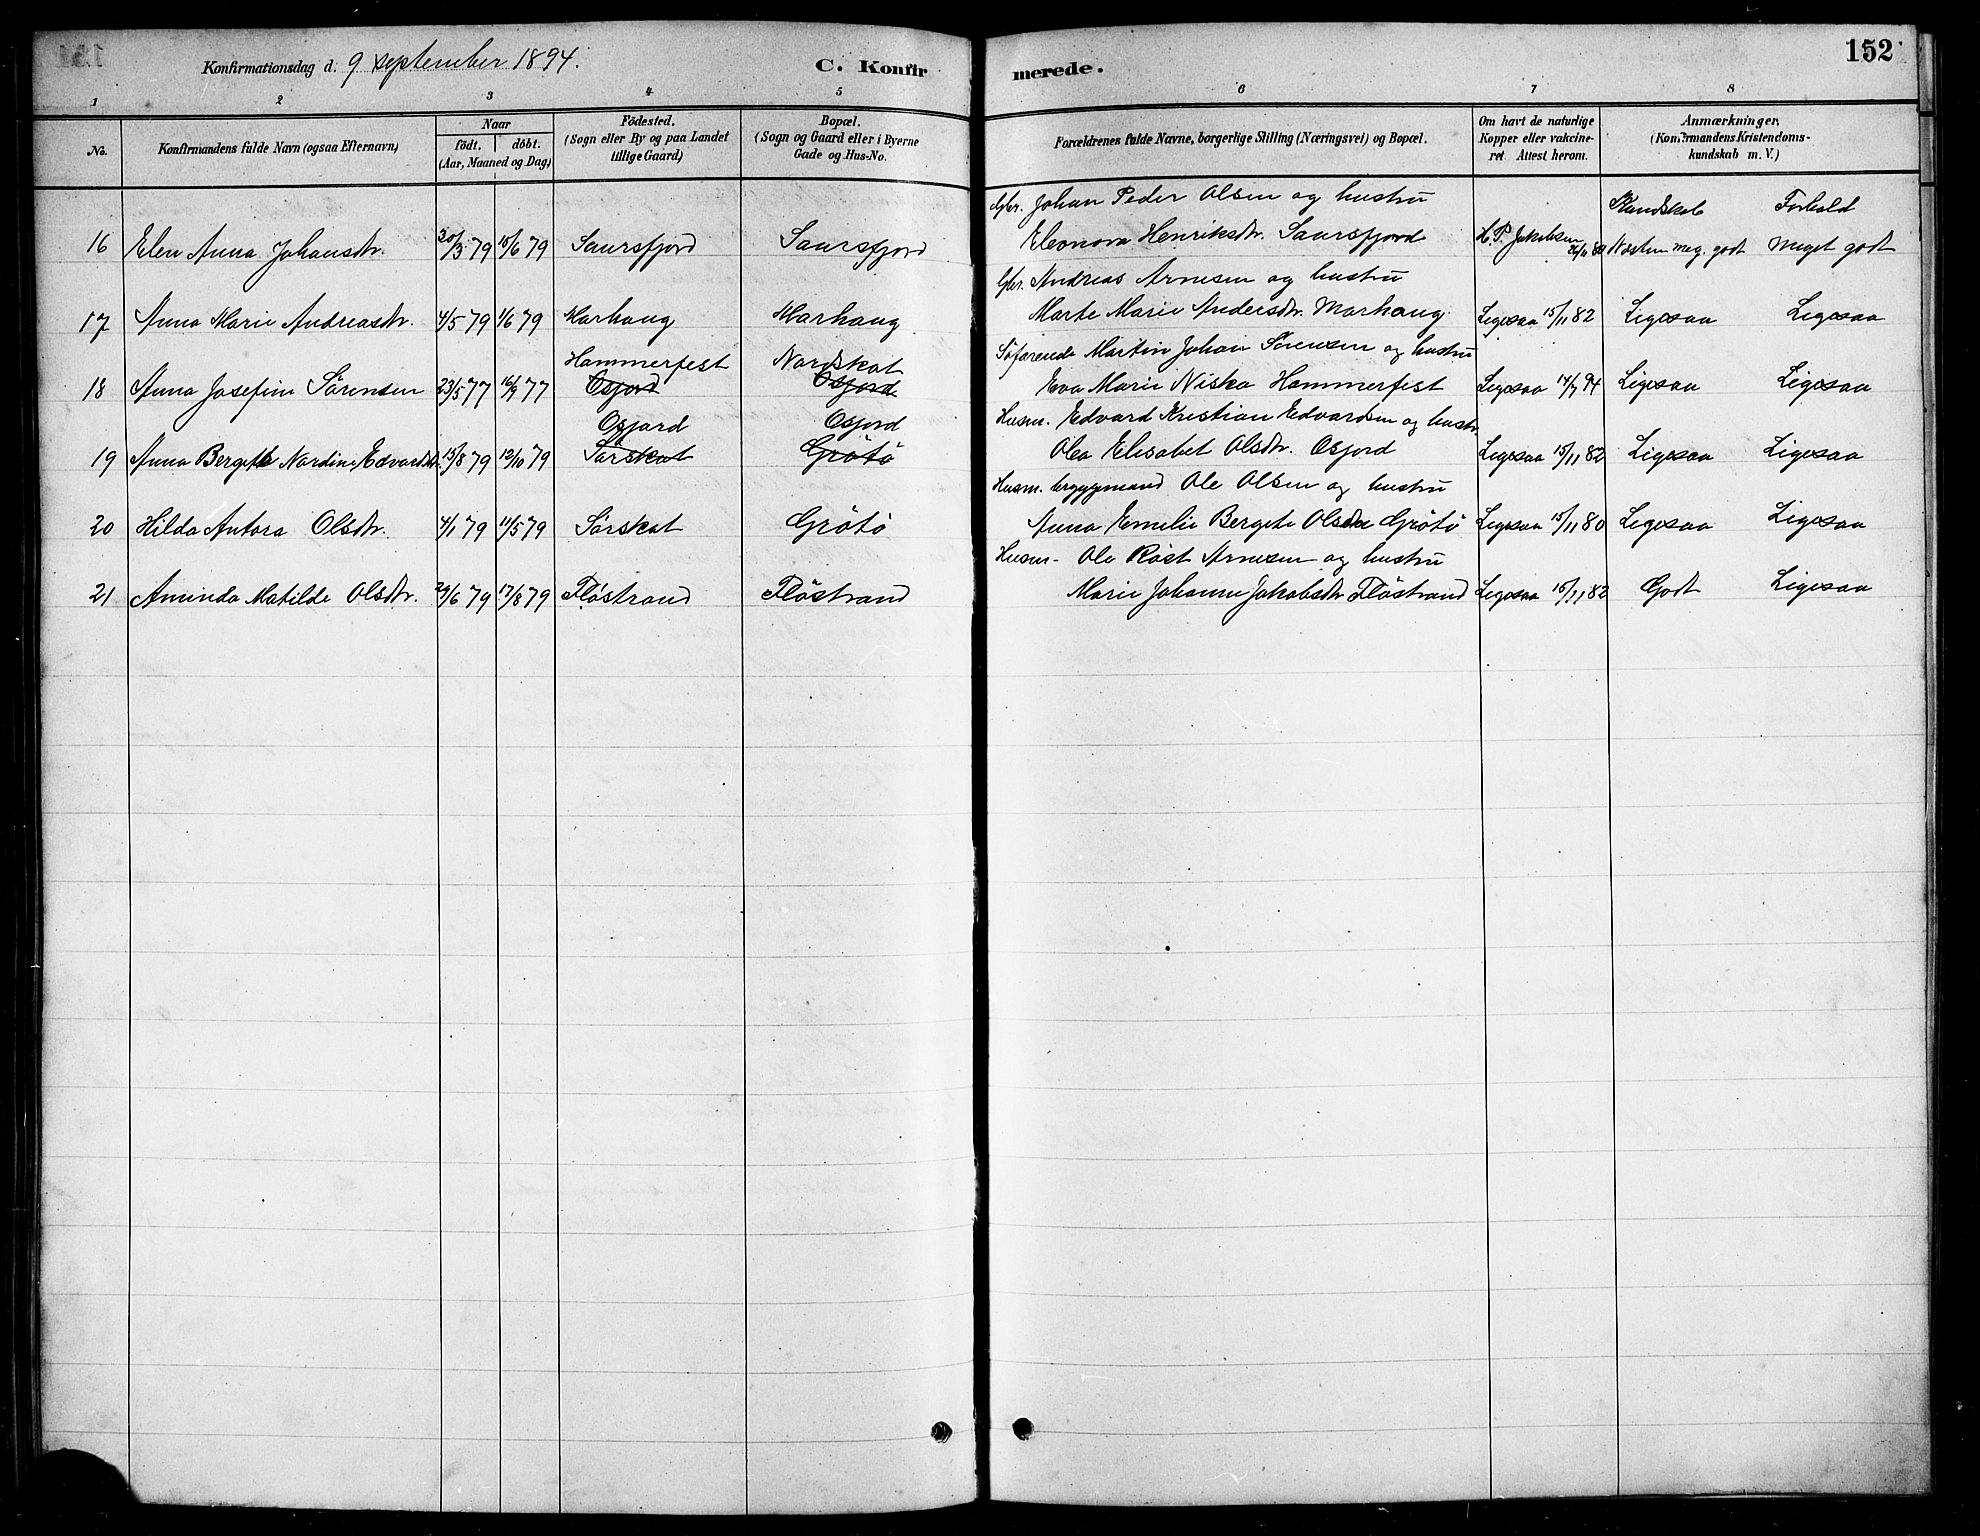 152
Konfirmationsdag d. 9 september 1894.
C. Konfir merede.
1 2 3 4 5 6 7 8
No.
Konfirmandens fulde Navn (ogsaa Efternavn)
Naar
født. døbt.
(Aar, Maaned og Dag)
Fødested.
(Sogn eller By og paa Landet
tillige Gaard)
Bopæl.
(Sogn og Gaard eller i Byerne
Gade og Hus-No.
Forældrenes fulde Navne, borgerlige Stilling (Næringsvei) og Bopæl.
Om havt de naturlige
Kopper eller vakcine-
ret Attest herom.
Anmærkninger.
(Konfirmandens Kristendoms-
kundskab m. V.)
Gbr. Johan Peder Olsen og hustru Kundskab Forhold
16 Elen Anna Johansdtr. 30/3 79 15/6 79 Saursfjord Saursfjord Eleonora Henriksdtr. Saursfjord H. P. Jakobsen Næsten meg. godt Meget godt
Gbr. Andreas Arnesen og hustru
17 Anna Marie Andreasdtr. 4/5 79 1/6 79 Marhaug Marhaug Marte Marie Andersdtr. Marhaug Ligesaa 15/11 82 Ligesaa Ligesaa
Hammerfest Nordskot Søfarende Martin Johan Sørensen og hustru
18 Anna Josefine Sørensen 23/5 77 16/9 77 Osfjord Osfjord Eva Marie Niska Hammerfest Ligesaa 14/7 94 Ligesaa Ligesaa
Osfjord Osfjord Husm. Edvard Kristian Edvardsen og hustr.
19 Anna Bergitte Nordine Edvardsdtr. 15/8 79 12/10 79 Sørskot Grøtø Olea Elisabet Olsdtr. Osfjord Ligesaa 15/11 82 Ligesaa Ligesaa
Husm. byggmand Ole Olsen og hustru
20 Hilda Antora Olsdtr. 4/1 79 11/5 79 Sørskot Grøtø Anna Emelie Bergete Olsdtr Grøtø Ligesaa 15/11 80 Ligesaa Ligesaa
Husm- Ole Røst Arnesen og hustru
21 Aminda Matilde Olsdtr. 29/6 79 17/8 79 Fløstrand Fløstrand Marie Johanne Jakobsdtr Fløstrand Ligesaa 15/11 82 Godt Ligesaa